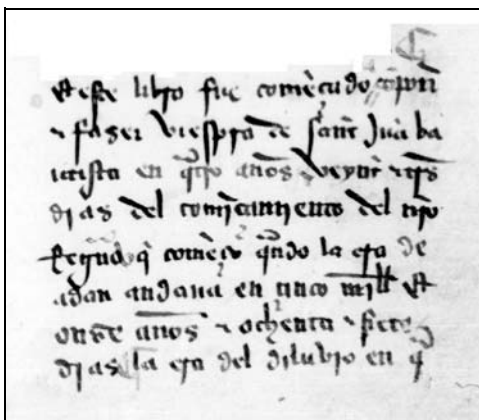 Et este libro fue comẽçado cõpon̄
⁊ faser viespra de sant Juã ba
utista en q̃tro anos ⁊ veynt ⁊ tres
dias del comẽcamiento del nr̃o
Regnado q̃ comẽço q̃ndo la era de
adan andaua en cinco mill Et
onse años ⁊ ochenta ⁊ siete
dias la era del dilubio en q̃